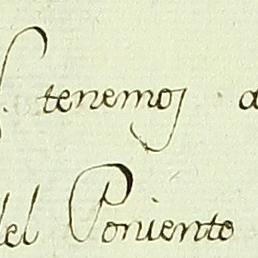 tenemos
del Poniento